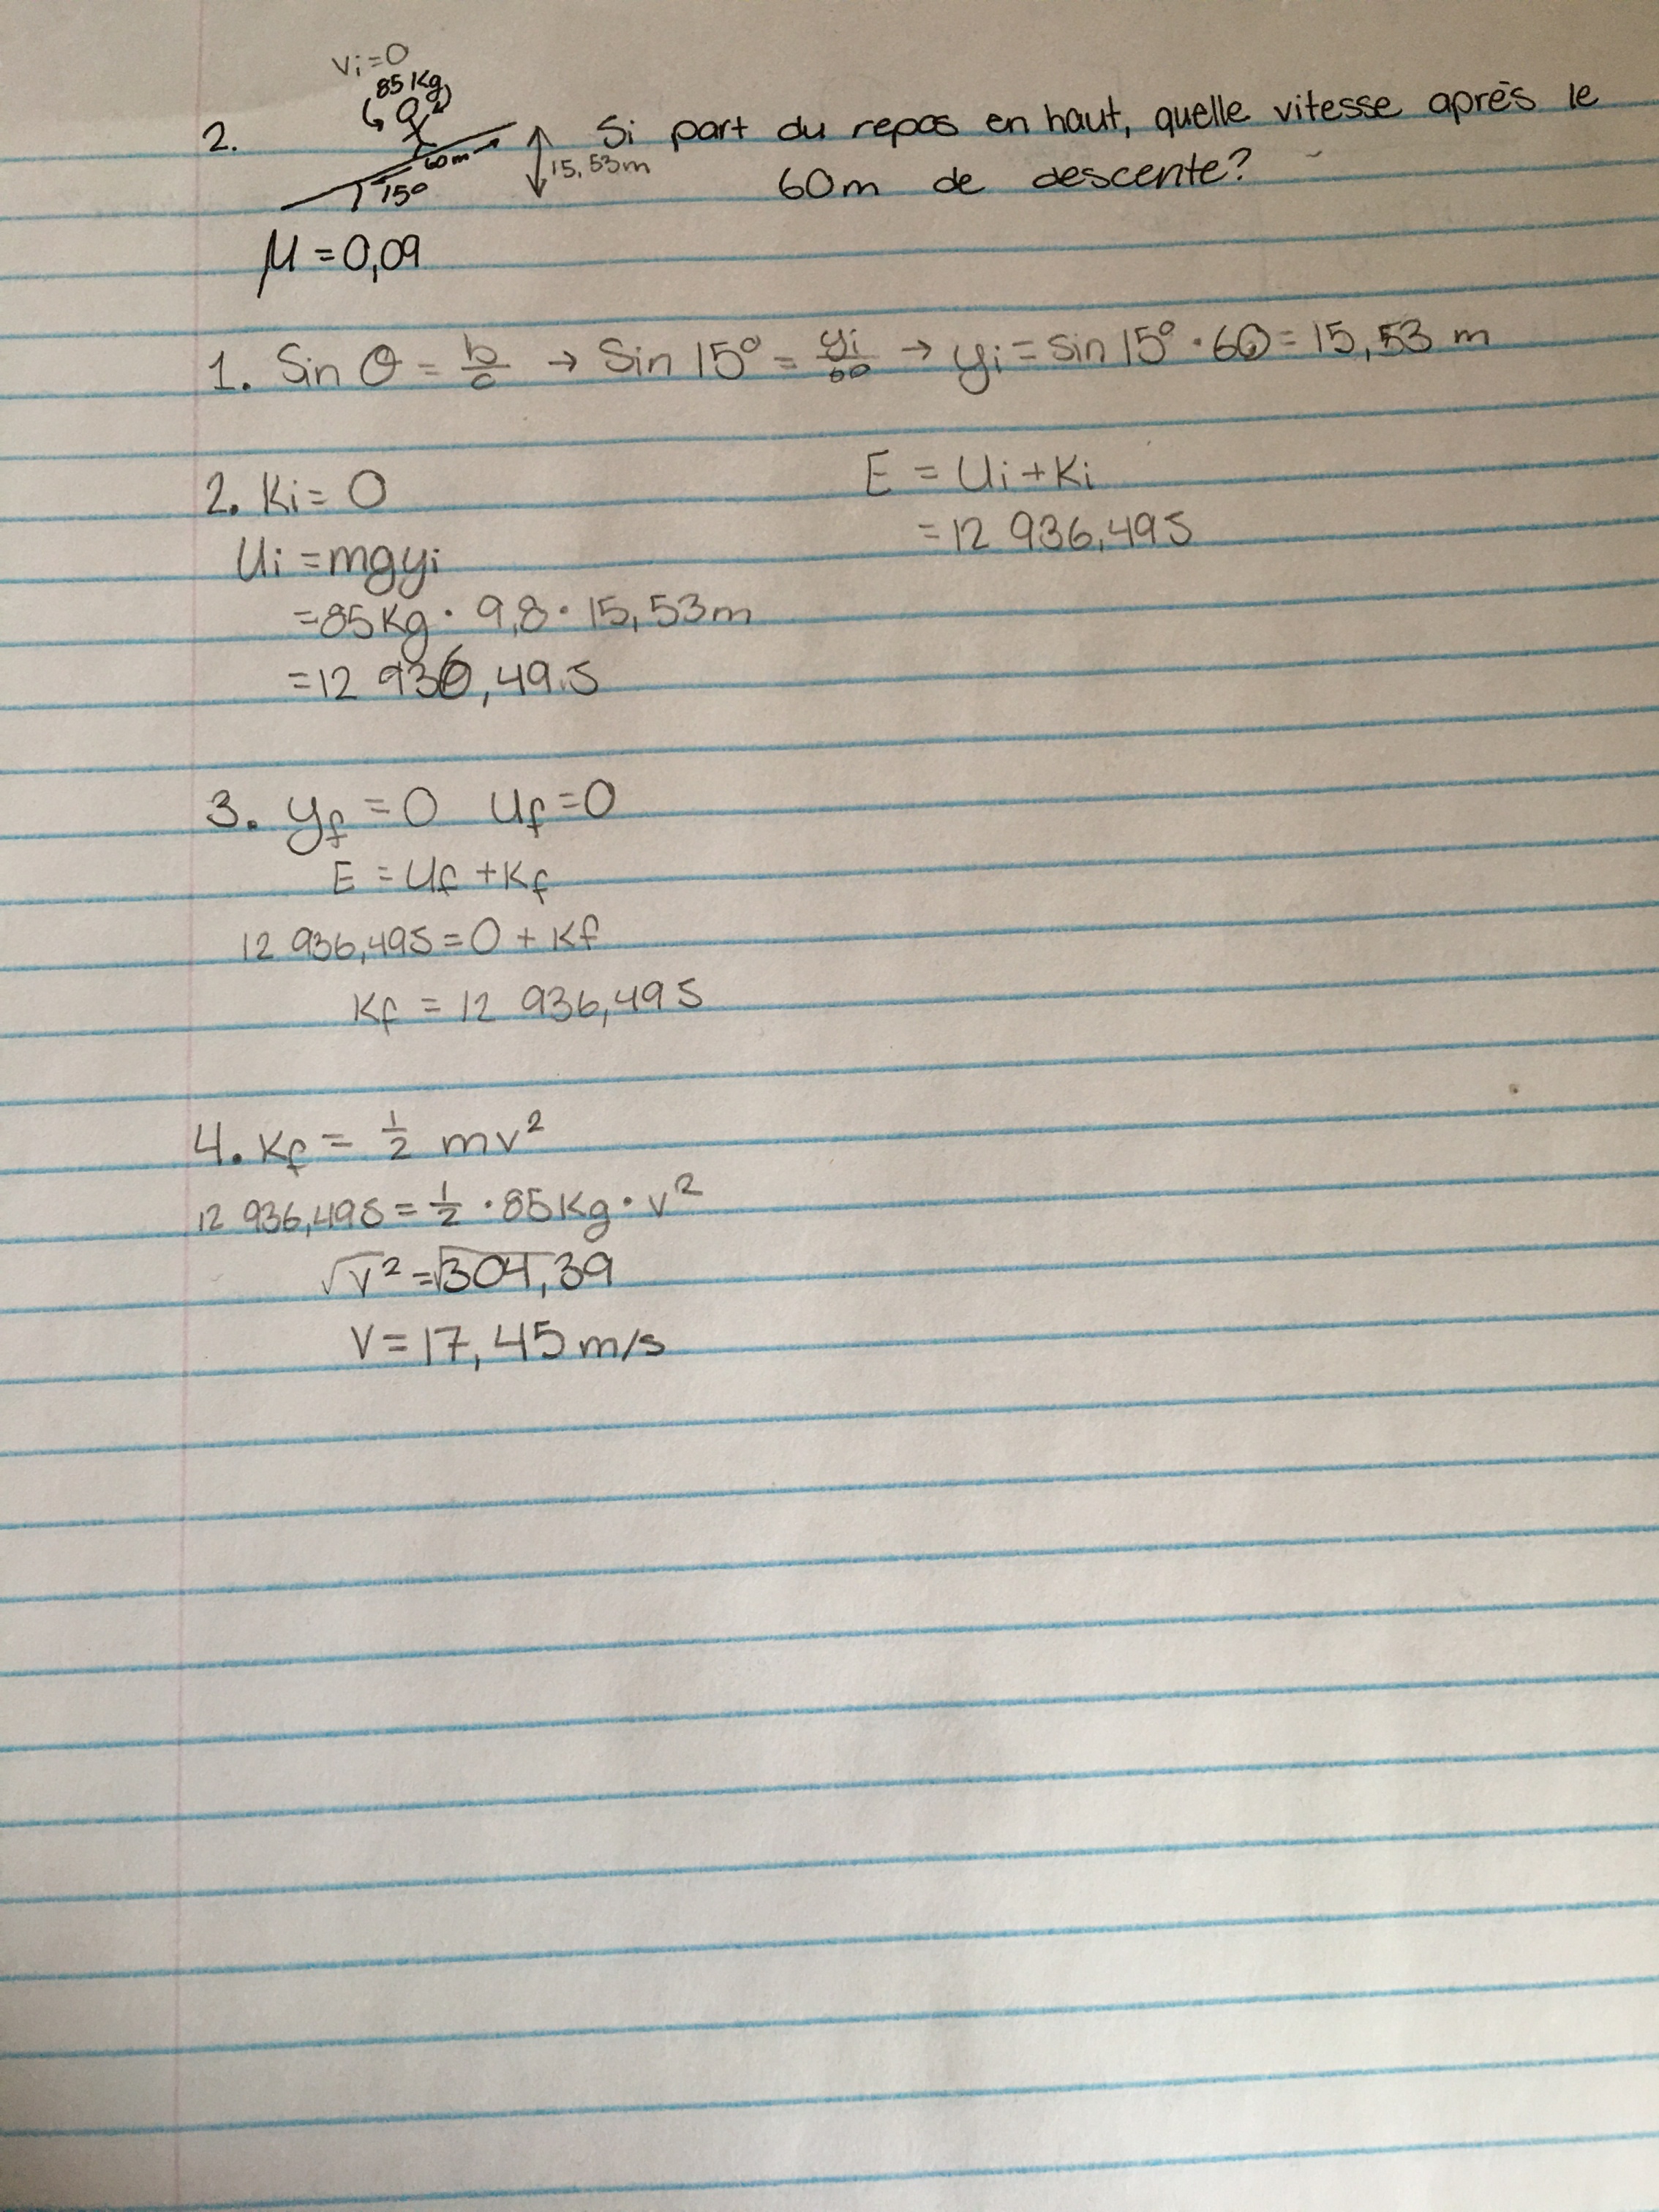 Vi=0
85 Kg
2.
60m
15°
15,53m
Si part du repos en haut, quelle vitesse après le
60m de descente?
μ = 0,09
1. Sin θ = b/c → Sin 15° = yi/60 → yi = sin 15° · 60 = 15,53 m
2. Ki = 0
E = Ui + Ki
= 12 936,495
Ui = mgyi
= 85Kg · 9,8 · 15,53m
= 12 936,495
3. yf = 0 Uf = 0
E = Uf + Kf
12 936,495 = 0 + Kf
Kf = 12 936,495
4. Kf = 1/2 mv²
12 936,495 = 1/2 · 85Kg · v²
√v² = √304,39
V = 17,45 m/s